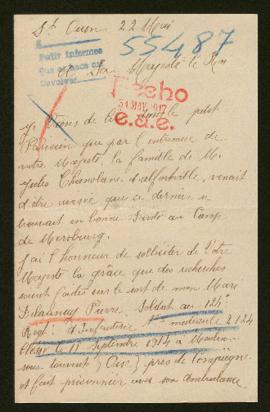 St Ouen 22 Mai
55487
Pedir informes
que se hace en
devolver
A Sa Majesté le Roi
Hecho
31 MAY. 917
e.a.e.
Je viens de lire dans le petit
Parisien que par l'entremise de
votre Majesté, la famille de M.
Jules Chanolans d'alfortville, venait
d'être avisée que ce dernier se
trouvait en bonne santé au camp
de Merseburg.
J'ai l'honneur de solliciter de Votre
Majesté la grâce que des recherches
soient faites sur le sort de mon Mari
Delaunay Pierre. Soldat au 124e
Regt d'Infanterie matricule 2124
Blessé le 15 Septembre 1914 à
sous touvent (Oise) près de
et fait prisonnier avec son Ambulance